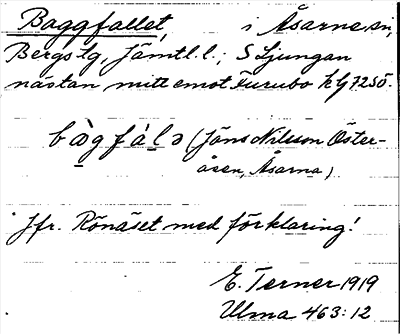 Baggfallet, i Åsarne sn,
Bergs tg, Jämtl. l.; S Ljungan
nästan mitt emot Furubo k bj 7250.
bàgfálə (Jöns Nilsson Öster-
åsen, Åsarna)
Jfr. Rönäset med förklaring!
E. Terner 1919
Ulma 463:12